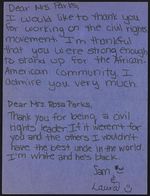 Dear Mrs. Parks,
I would like to thank you
for working on the civil rights
movement. I'm thankful
that you were strong enough
to stand up for the African-
American community. I
admire you very much.
Dear Mrs. Rosa Parks,
Thank you for being a civil
rights leader. If it weren't for
you and the others I wouldn't
have the best unde in the world
I'm white and he's black.
Sam
&
Laura